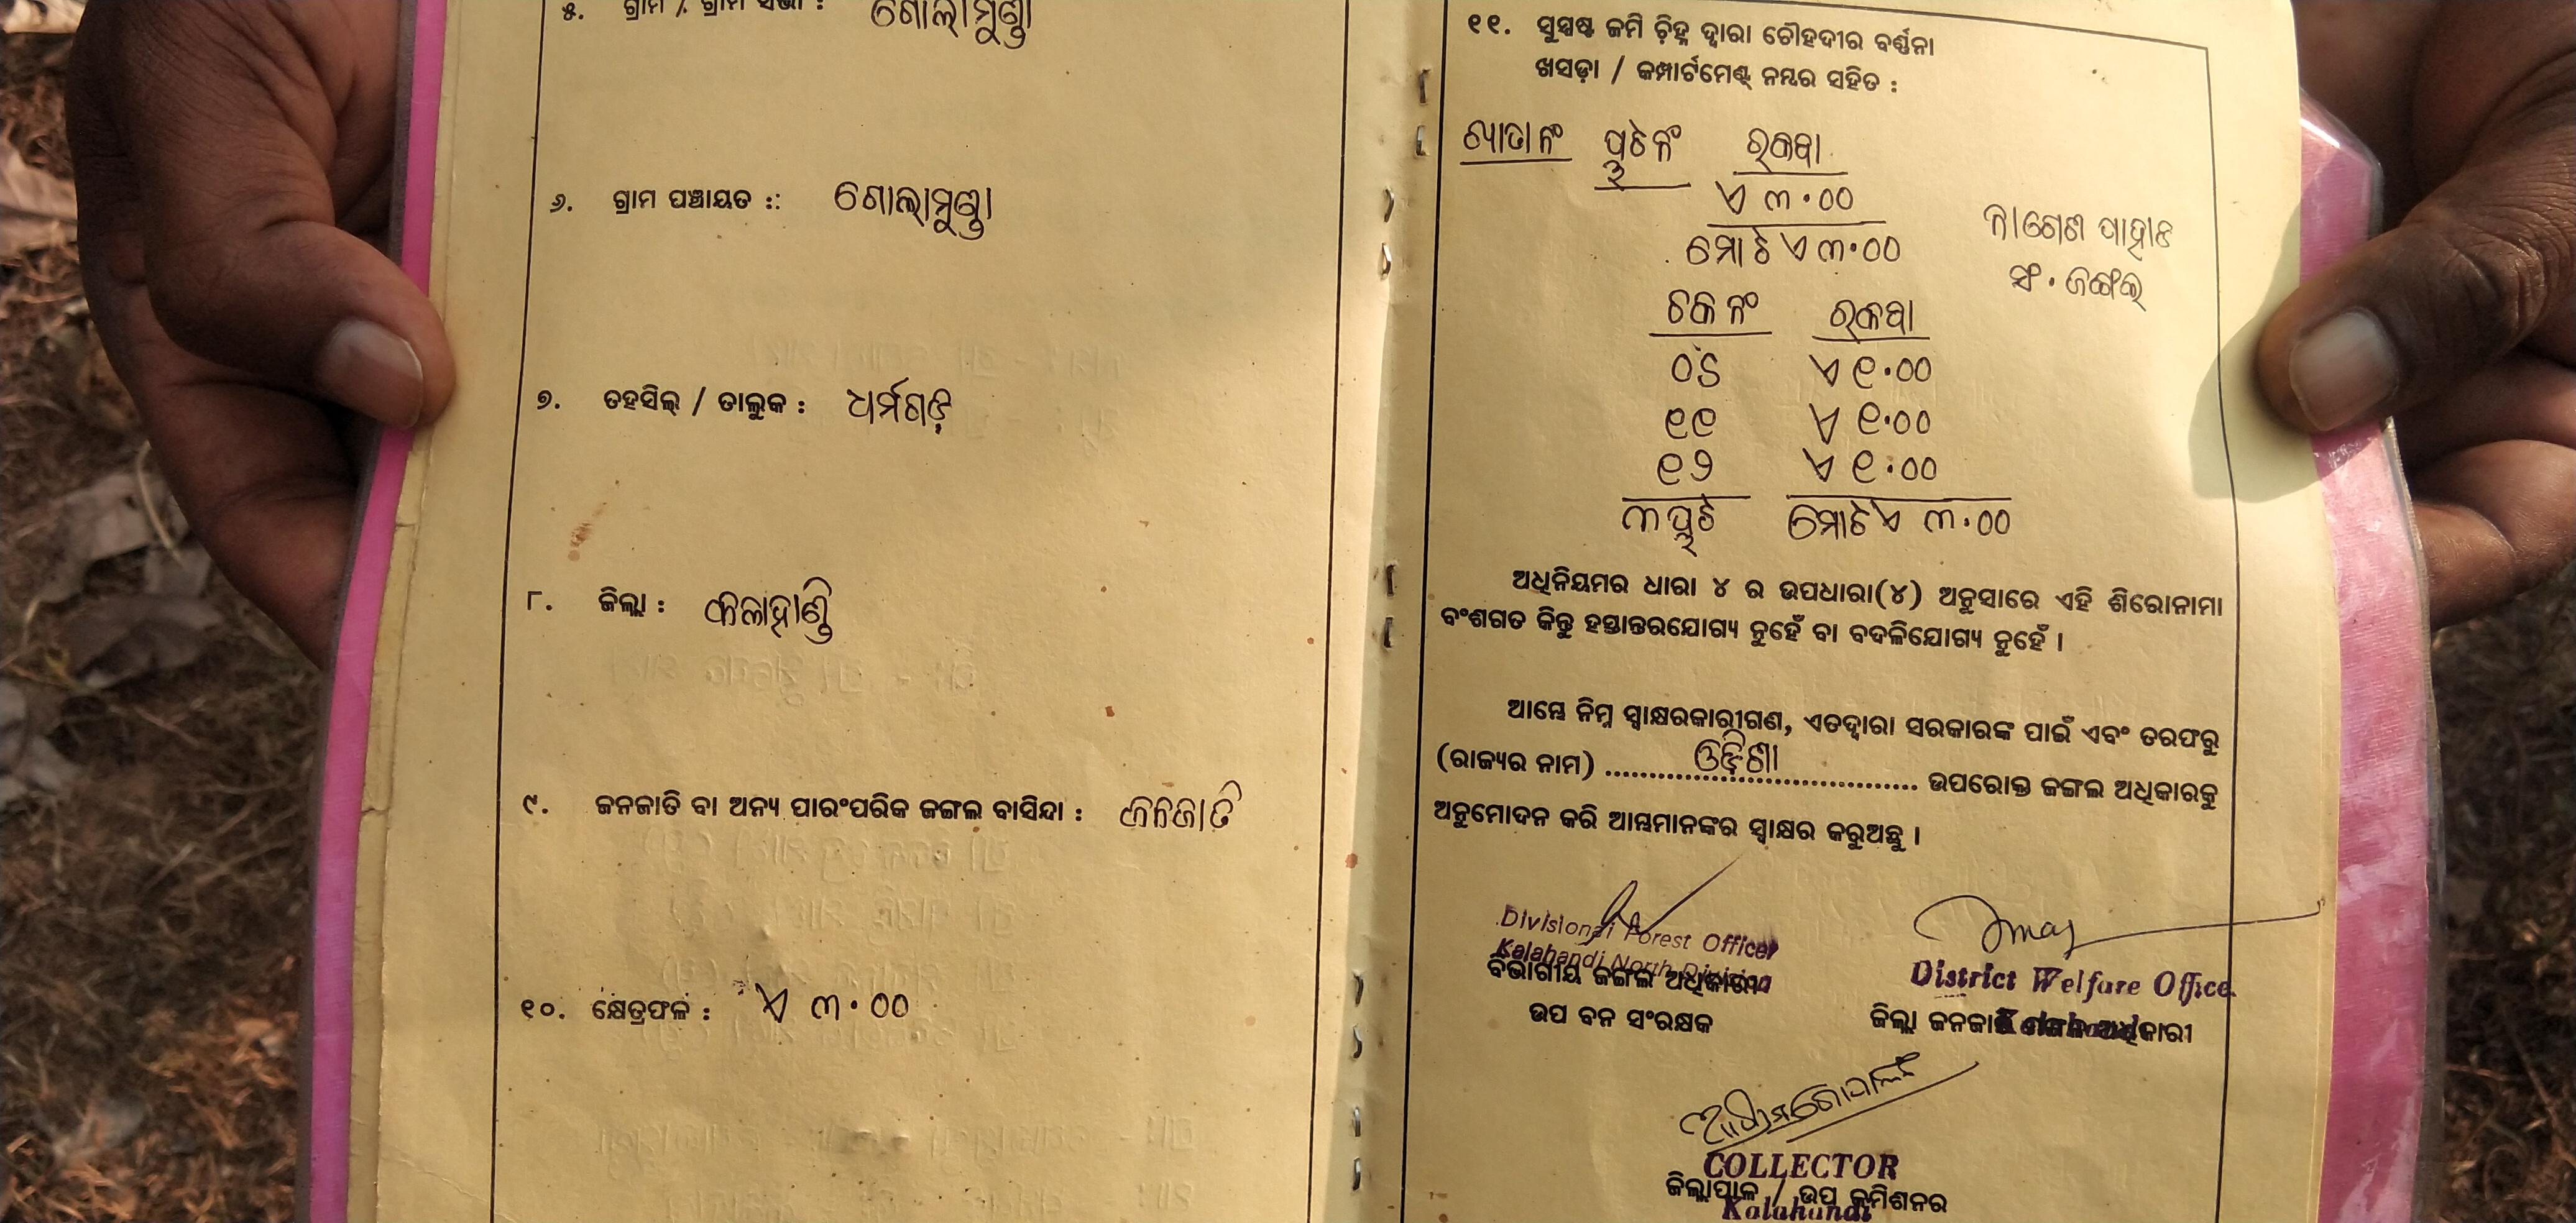 ୫. ଗ୍ରାମ / ଗ୍ରାମ ସଭା : ଗୋଲାମୁଣ୍ଡା
୬. ଗ୍ରାମ ପଞ୍ଚାୟତ :: ଗୋଲାମୁଣ୍ଡା
୭. ତହସିଲ୍ / ତାଲୁକ : ଧର୍ମଗଡ଼
୮. ଜିଲ୍ଲା : କଳାହାଣ୍ଡି
୯. ଜନଜାତି ବା ଅନ୍ୟ ପାରଂପରିକ ଜଙ୍ଗଲ ବାସିନ୍ଦା : ଜନଜାତି
୧୦. କ୍ଷେତ୍ରଫଳ : ଏ ୩.୦୦
୧୧. ସୁସ୍ପଷ୍ଟ ଜମି ଚ଼ିହ୍ନ ଦ୍ୱାରା ଚୌହଦୀର ବର୍ଣ୍ଣନା
ଖସଡ଼ା / କମ୍ପାର୍ଟମେଣ୍ଟ୍ ନମ୍ବର ସହିତ :
ଖାତା ନଂ ପ୍ଲଟ ନଂ ରକବା
ଏ ୩.୦୦
ମୋଟ ଏ ୩.୦୦
ପାହାଡ
ସଂ. ଜଙ୍ଗଲ
ଚକ ନଂ ରକବା
୦୪ ଏ ୧.୦୦
୧୧ ଏ ୧.୦୦
୧୨ ଏ ୧.୦୦
୩ ପ୍ଲଟ ମୋଟ ଏ ୩.୦୦
ଅଧିନିୟମର ଧାରା ୪ ର ଉପଧାରା(୪) ଅନୁସାରେ ଏହି ଶିରୋନାମା
ବଂଶଗତ କିନ୍ତୁ ହସ୍ତାନ୍ତରଯୋଗ୍ୟ ନୁହେଁ ବା ବଦଳିଯୋଗ୍ୟ ନୁହେଁ ।
ଆମ୍ଭେ ନିମ୍ନ ସ୍ୱାକ୍ଷରକାରୀଗଣ, ଏତଦ୍ୱାରା ସରକାରଙ୍କ ପାଇଁ ଏବଂ ତରଫରୁ
(ରାଜ୍ୟର ନାମ) ........ ଓଡ଼ିଶା ........ ଉପରୋକ୍ତ ଜଙ୍ଗଲ ଅଧିକାରକୁ
ଅନୁମୋଦନ କରି ଆମ୍ଭମାନଙ୍କର ସ୍ୱାକ୍ଷର କରୁଅଛୁ ।
Divisional Forest Officer
Kalahandi North Division
ବିଭାଗୀୟ ଜଙ୍ଗଲ ଅଧିକାରୀ
ଉପ ବନ ସଂରକ୍ଷକ
District Welfare Office
ଜିଲ୍ଲା ଜନଜାତି ଅଧିକାରୀ
COLLECTOR
ଜିଲ୍ଲାପାଳ / ଉପ କମିଶନର
Kalahandi